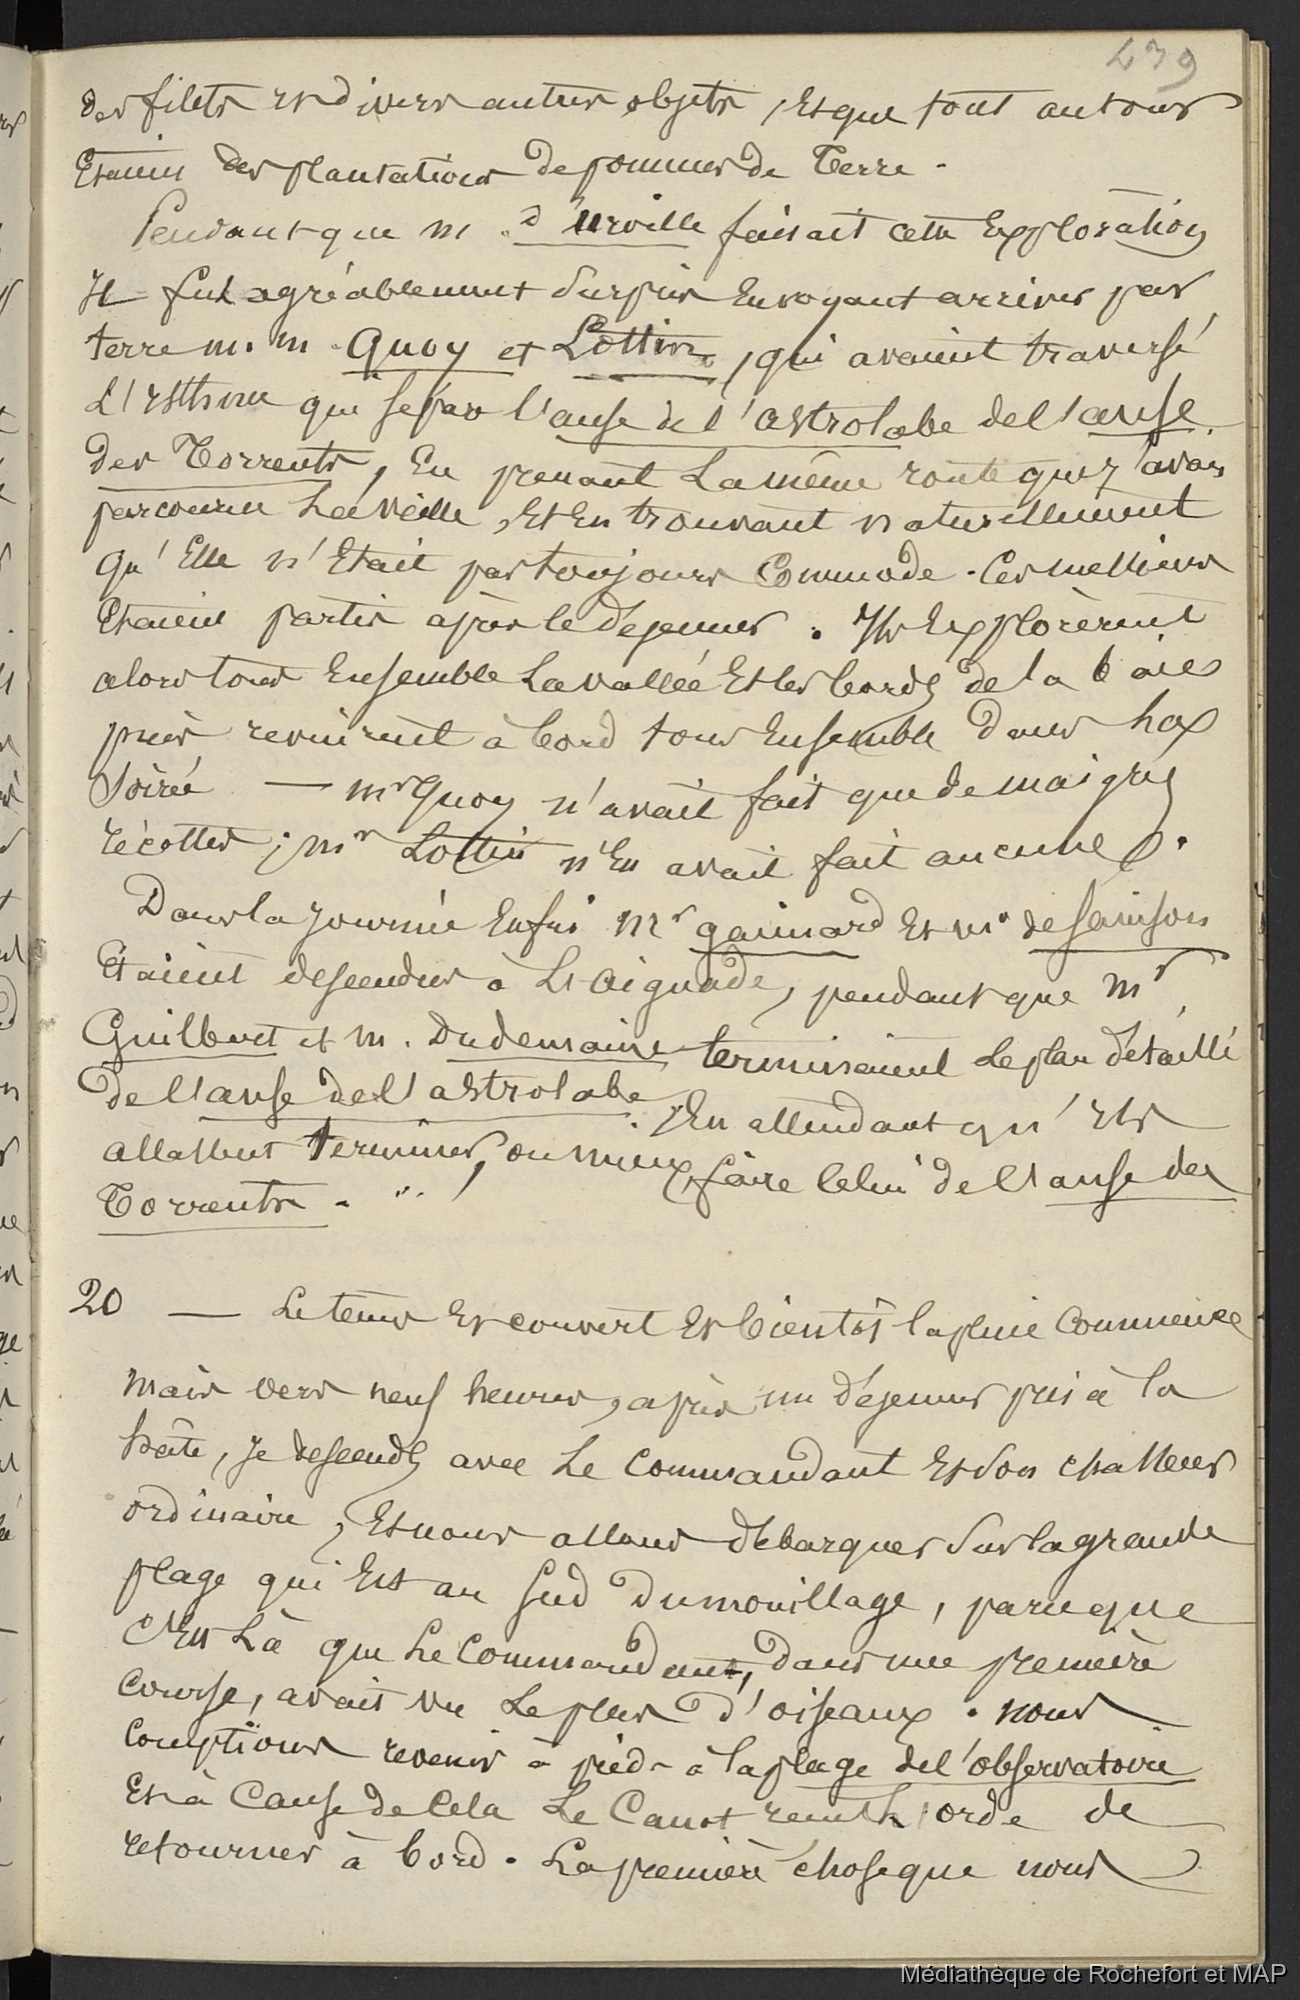 439
des filets et divers autres objets, et que tout autour
Etaient des plantations de pommes de Terre.
Pendant que m. d'urville faisait cette Exploration
Il fut agréablement surpris En voyant arriver par
terre m.m. Quoy et Lottin, qui avaient traversé
L'isthme qui sépar l'anse de l'astrolabe de l'anse
des Torrents, En prenant La même route que j'avais
parcourue La veille, Et En trouvant naturellement
qu'Elle n'Etait pas toujours Commode. Ces messieurs
Etaient partis après le déjeuner. Ils Explorèrent
alors tous Ensemble La vallée Et les bords de la baie
puis revinrent à bord tous Ensemble dans la
Soirée — mr Quoy n'avait fait que de maigres
récoltes; mr Lottin n'En avait fait aucune.
Dans la journée Enfin Mr gaimard Et mr de sainson
Etaient descendus à L'aiguade, pendant que mr
Guilbert et m. Dudemaine terminaient Le plan détaillé
de l'anse de l'astrolabe, En attendant qu'ils
allassent terminer, ou mieux, faire Celui de l'anse des
Torrents.
20 — Le tems Est couvert Et bientôt la pluie Commence
Mais vers neuf heures, après un déjeuner pris à la
hâte, Je descends avec Le Commandant Et son chasseur
ordinaire, Et nous allons débarquer sur la grande
plage qui Est au sud du mouillage, parceque
C'Est Là que Le Commandant, dans une première
Course, avait vu Le plus d'oiseaux. nous
Comptions revenir à pied à la plage de l'observatoire
Et à Cause de Cela Le Canot reçut l'orde de
retourner à bord. La première chose que nous
Médiathèque de Rochefort et MAP